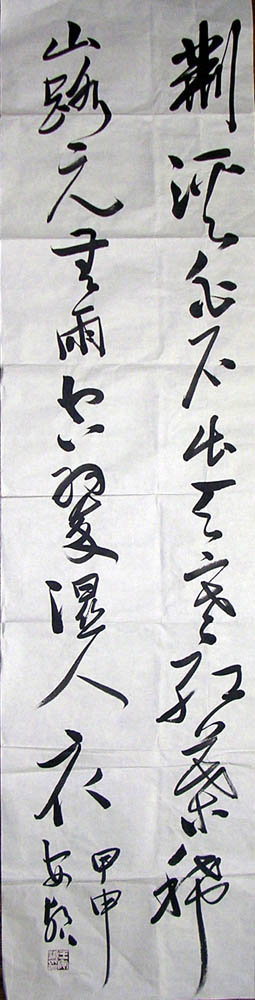 荆溪白石出天寒红葉稀
山路元無雨空翠湿人衣
甲申